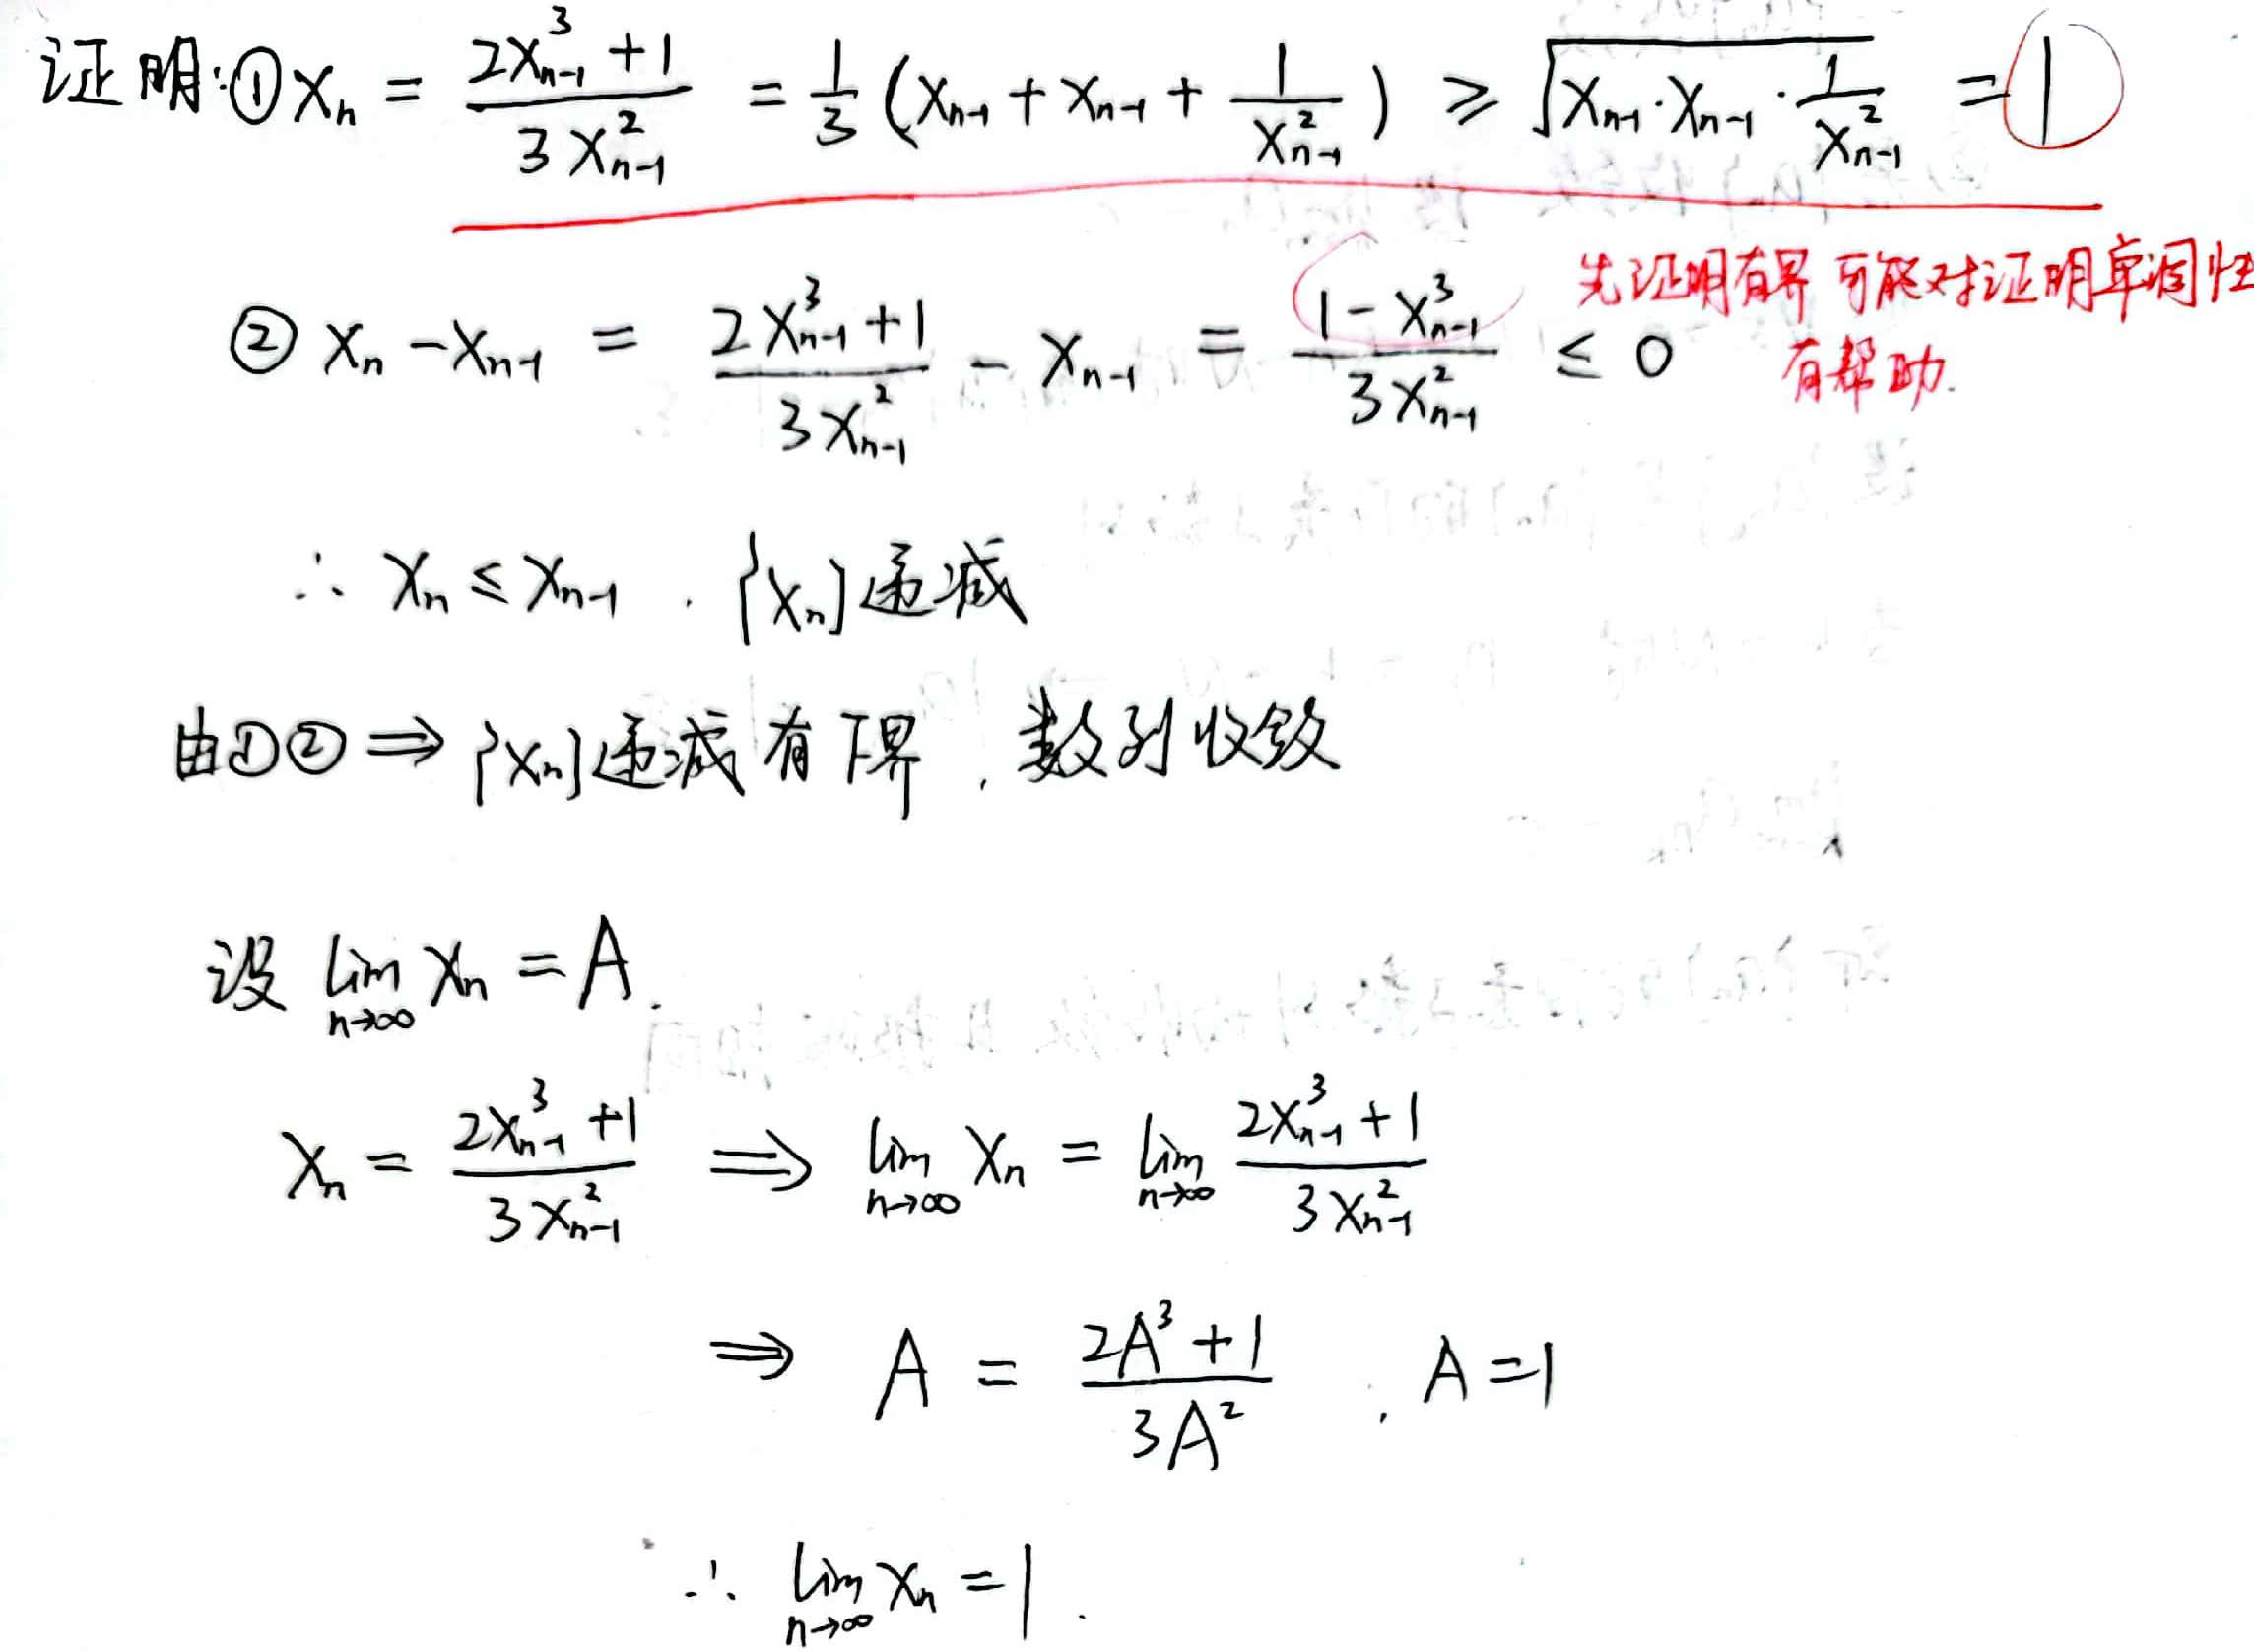 证明:① xₙ = (2xₙ₋₁³ + 1)/(3xₙ₋₁²) = 1/3 (xₙ₋₁ + xₙ₋₁ + 1/xₙ₋₁²) ≥ √(xₙ₋₁·xₙ₋₁·1/xₙ₋₁²) = 1
先证明有界 可能对证明单调性
有帮助.
② xₙ - xₙ₋₁ = (2xₙ₋₁³ + 1)/(3xₙ₋₁²) - xₙ₋₁ = (1 - xₙ₋₁³)/(3xₙ₋₁²) ≤ 0
∴ xₙ ≤ xₙ₋₁ . {xₙ}递减
由①② ⇒ {xₙ}递减有下界, 数列收敛
设 lim_{n→∞} xₙ = A.
xₙ = (2xₙ₋₁³ + 1)/(3xₙ₋₁²) ⇒ lim_{n→∞} xₙ = lim_{n→∞} (2xₙ₋₁³ + 1)/(3xₙ₋₁²)
⇒ A = (2A³ + 1)/(3A²) , A = 1
∴ lim_{n→∞} xₙ = 1.